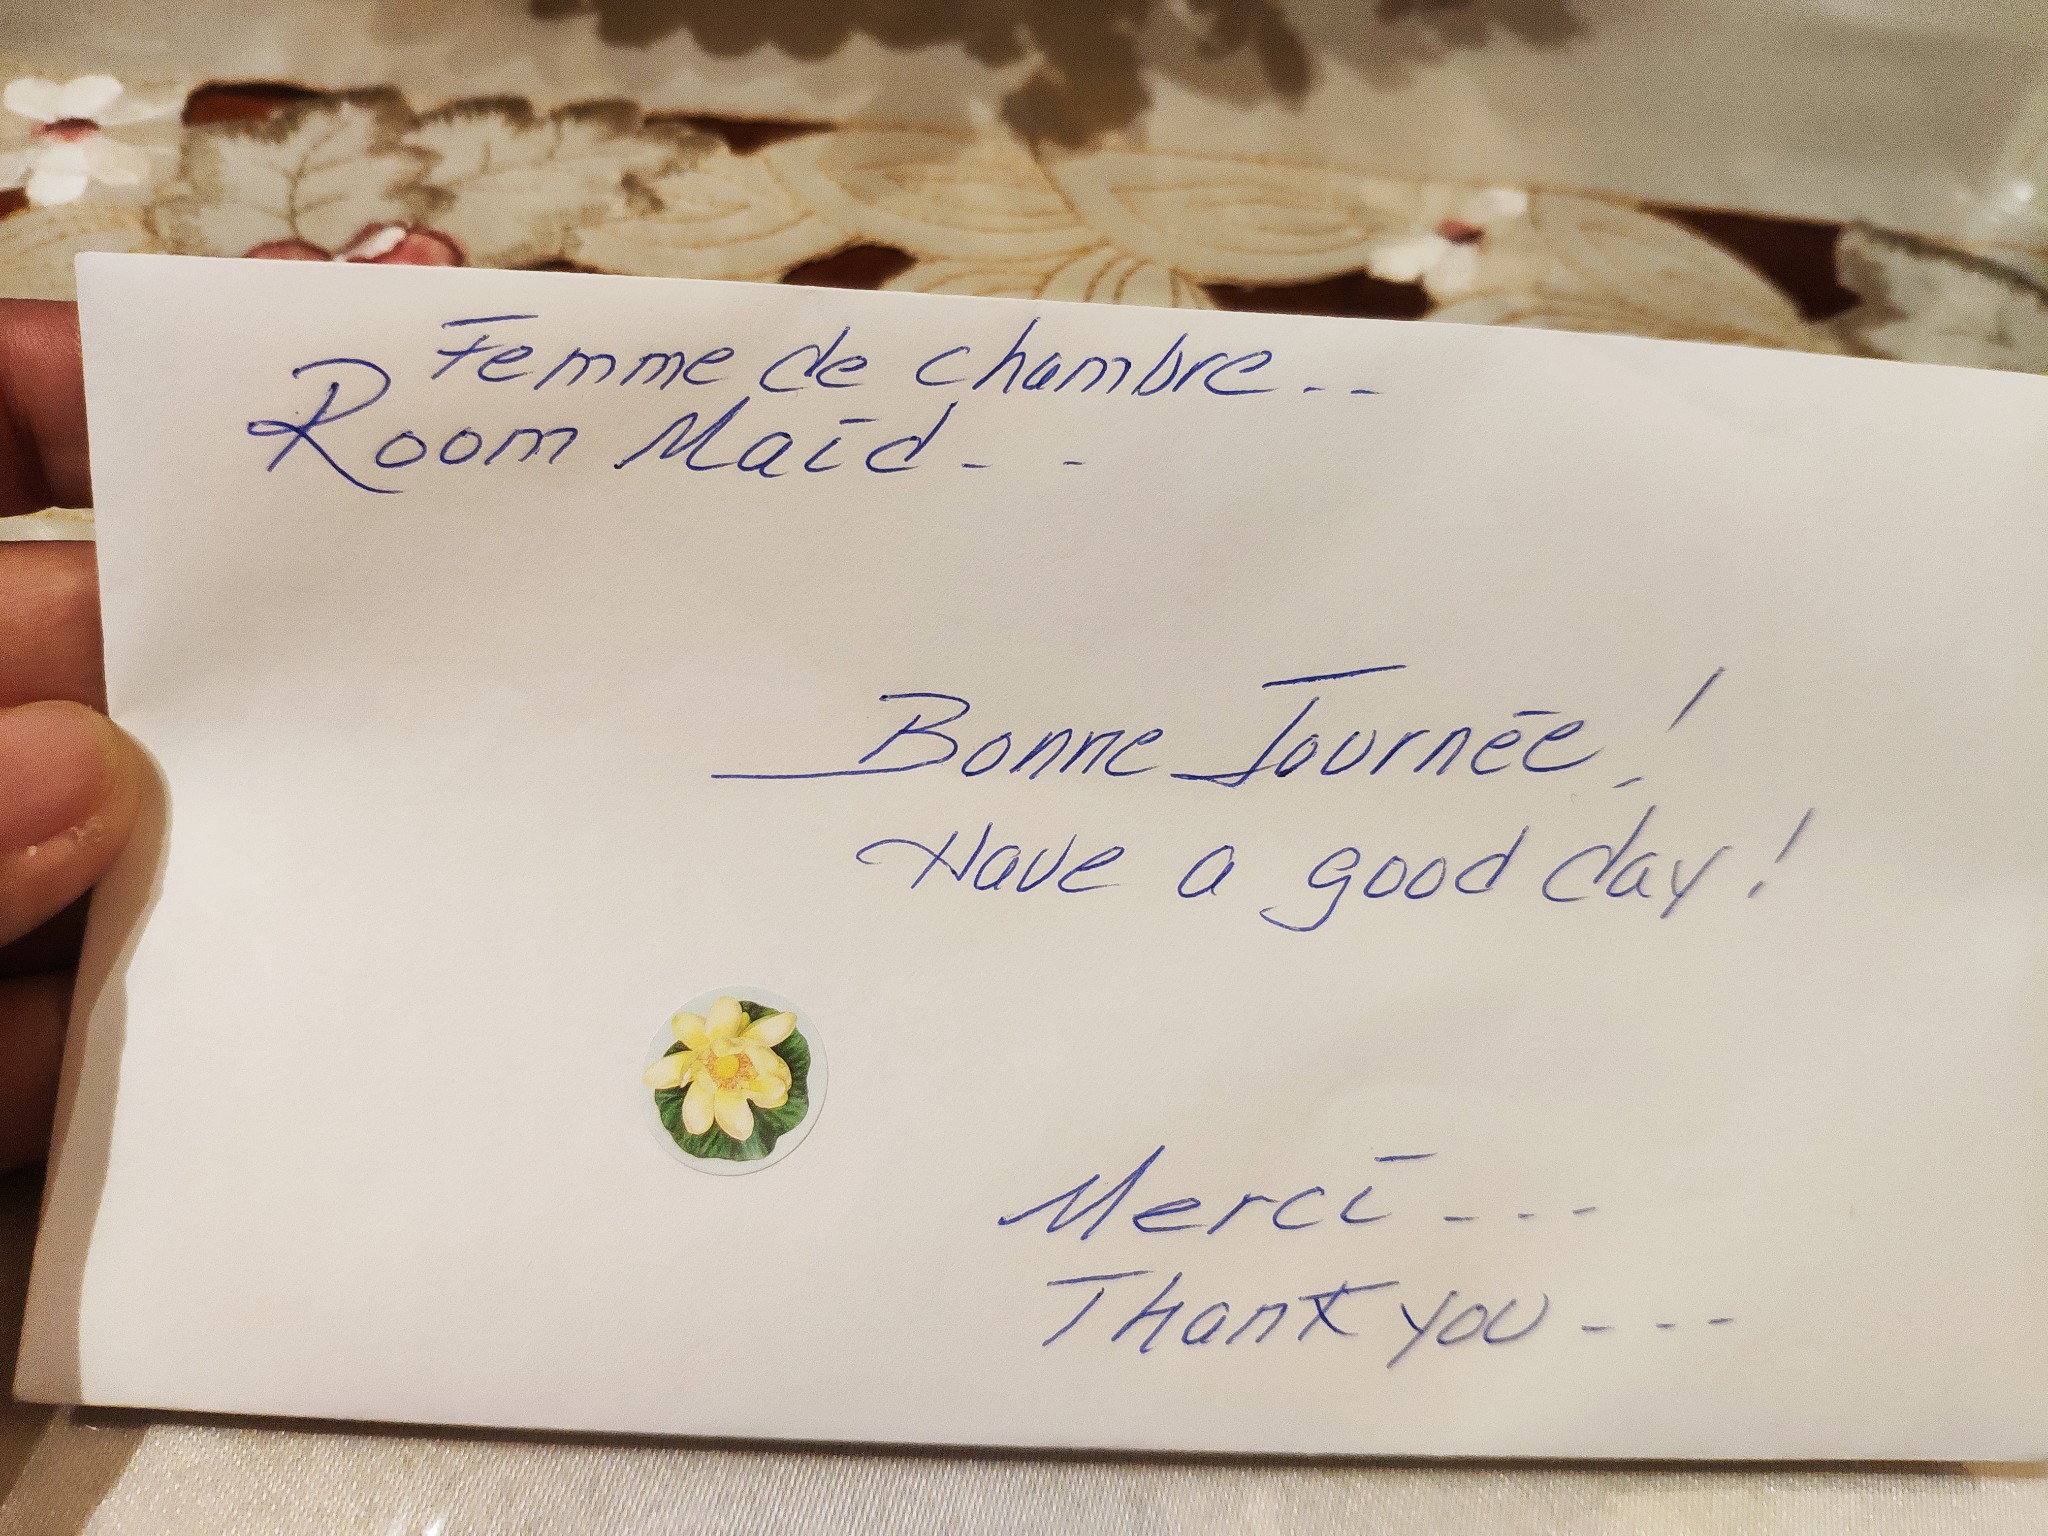 Femme de chambre..
Room Maid..
Bonne Journée!
Have a good day!
Merci...
Thank you...